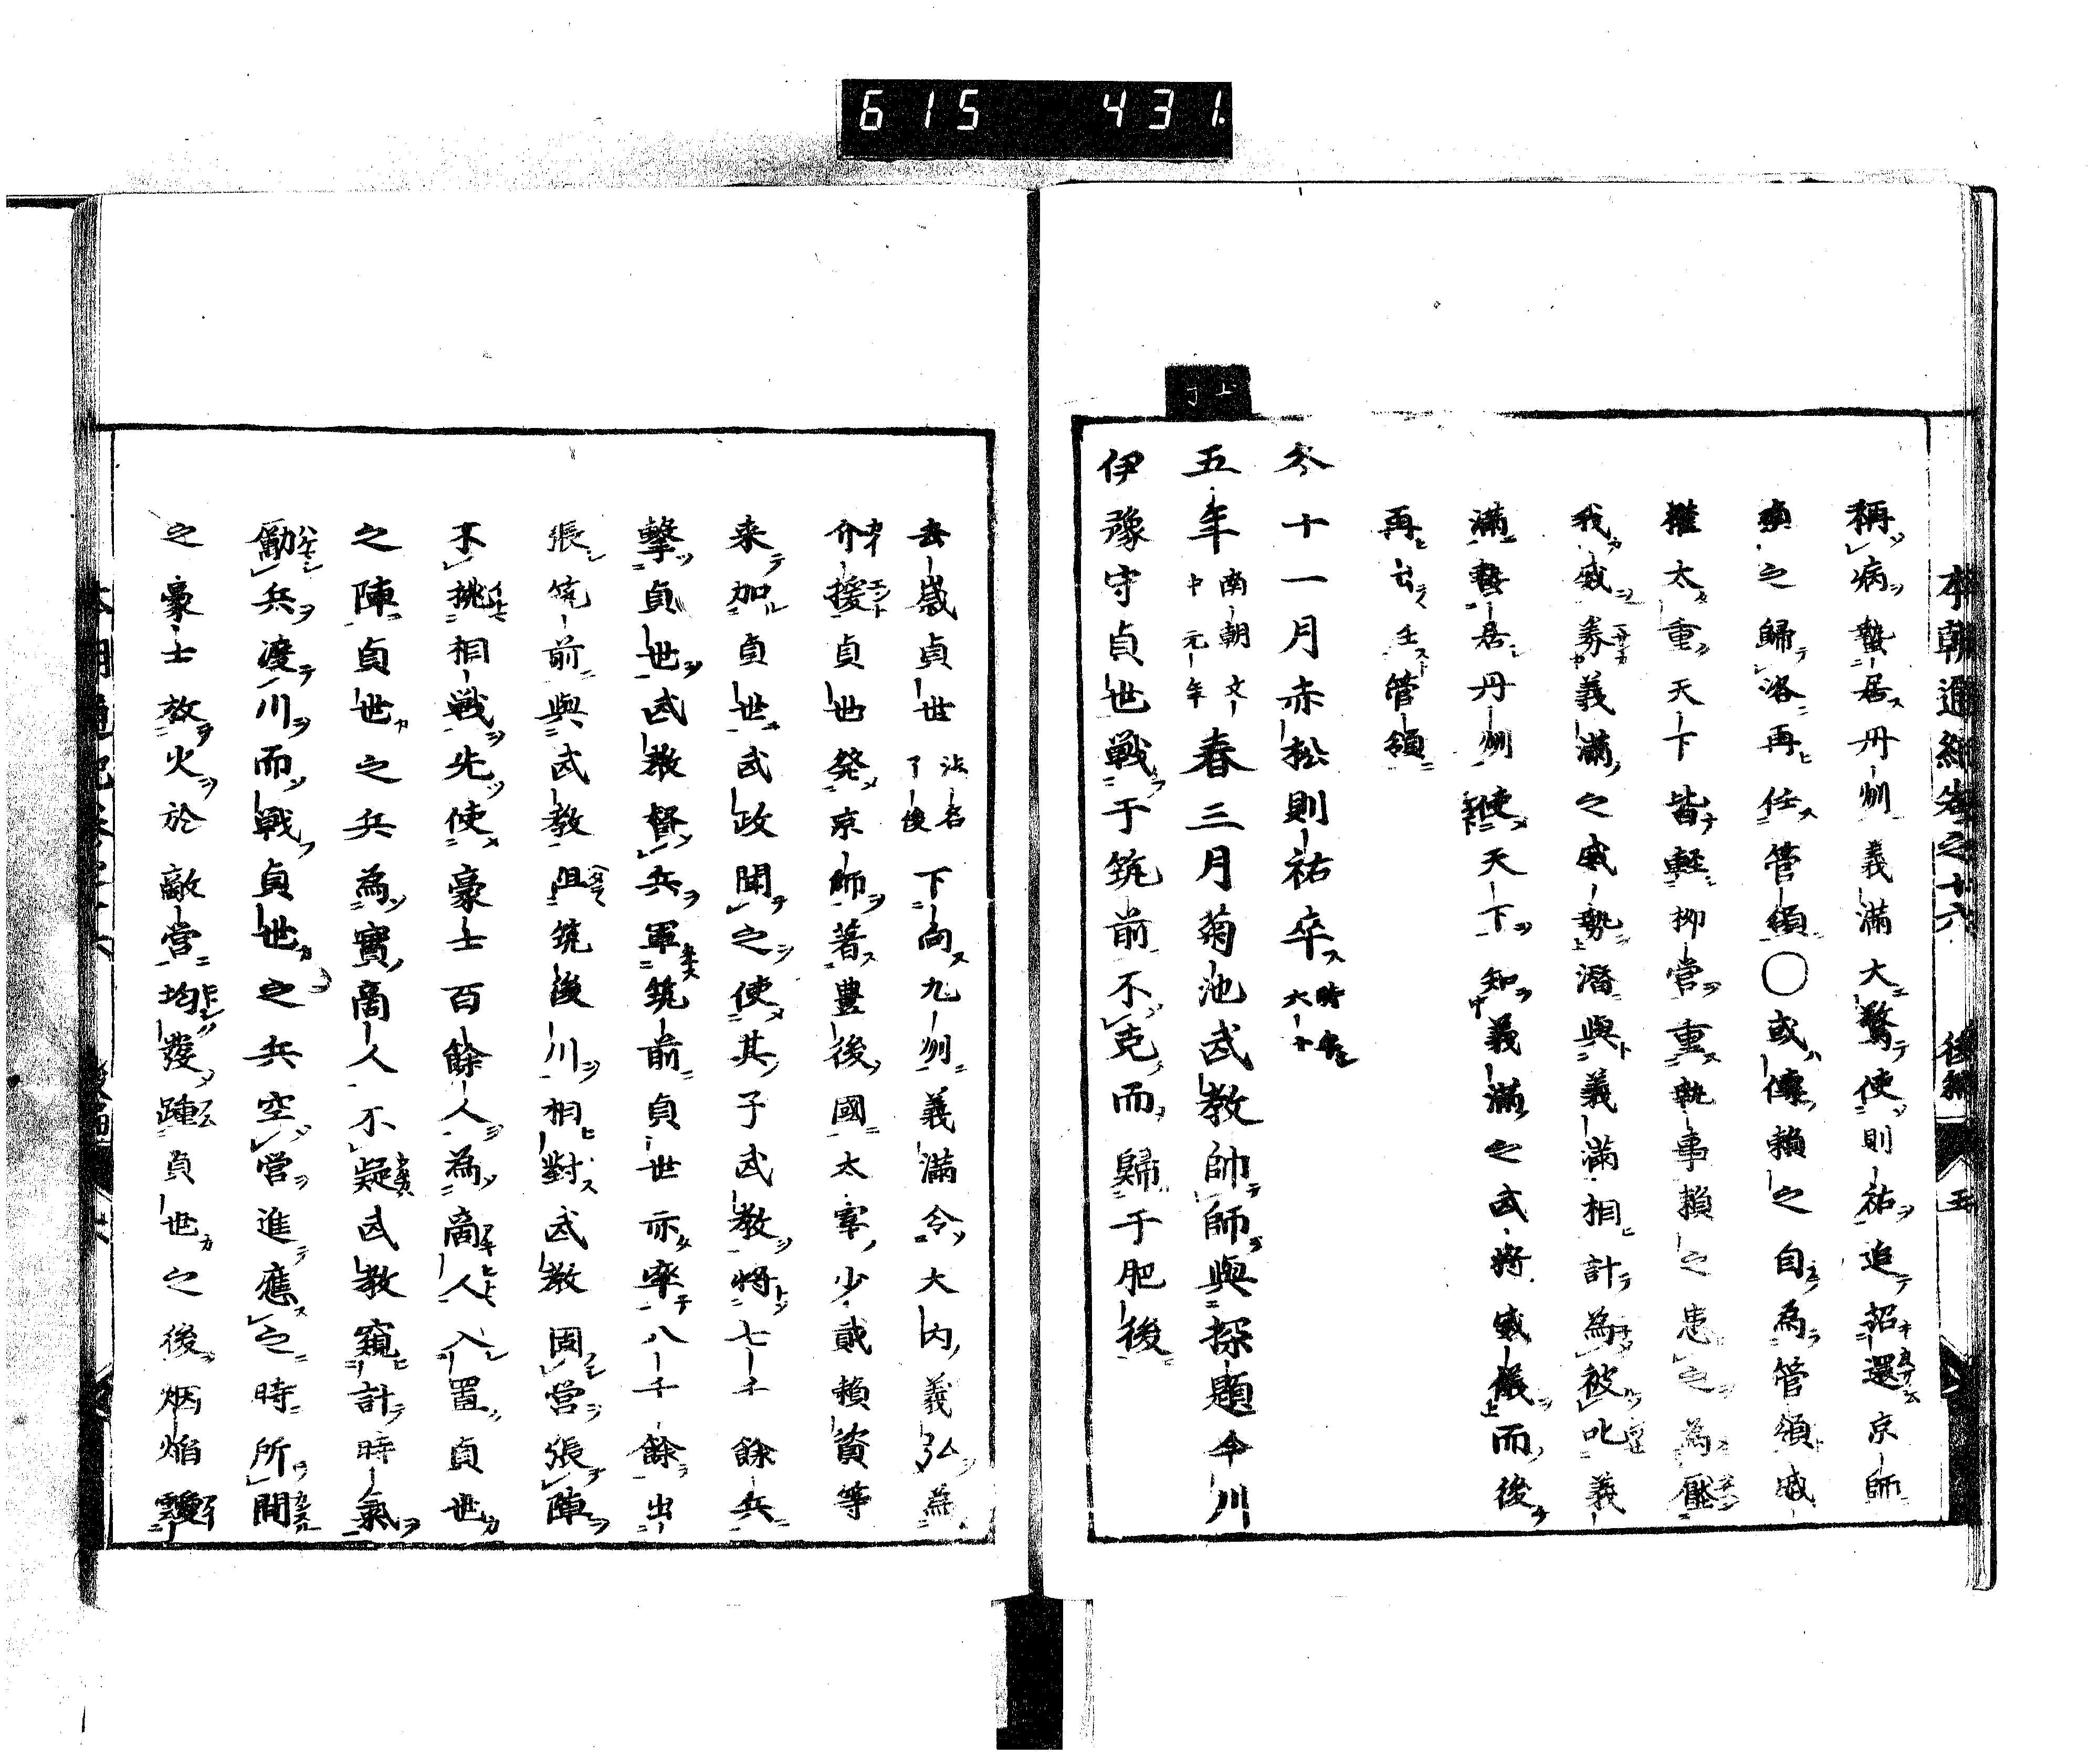 615 431.
本朝通紀卷之十六 後編 五
稱病蟄居丹州義滿大驚使則祐追招還京師
頼之歸洛再任管領〇或傳頼之自為管領威
權太重天下皆輕柳營重執事頼之患之為壓
我威募義滿之威勢潛與義滿相計為被叱義
滿蟄居丹州使天下知義滿之武将威儀而後
再出任管領
冬十一月赤松則祐卒時年六十
五年南朝文中元年春三月菊池武教帥師與探題今川
伊豫守貞世戰于筑前不克而歸于肥後
去歲貞世法名了俊下向九州義滿令大内義弘為
介援貞世発京師著豊後國太宰少貳頼資等
来加貞世武政聞之使其子武教将七千餘兵
擊貞世武教督兵軍筑前貞世亦率八千餘出
張筑前與武教阻筑後川相對武教固營張陣
不挑相戰先使豪士百餘人為商人入置貞世
之陣貞世之兵為實商人不疑武教窺計時氣
勵兵渡川而戰貞世之兵空營進應之時所間
之豪士放火於敵營均發踵貞世之後烟焰